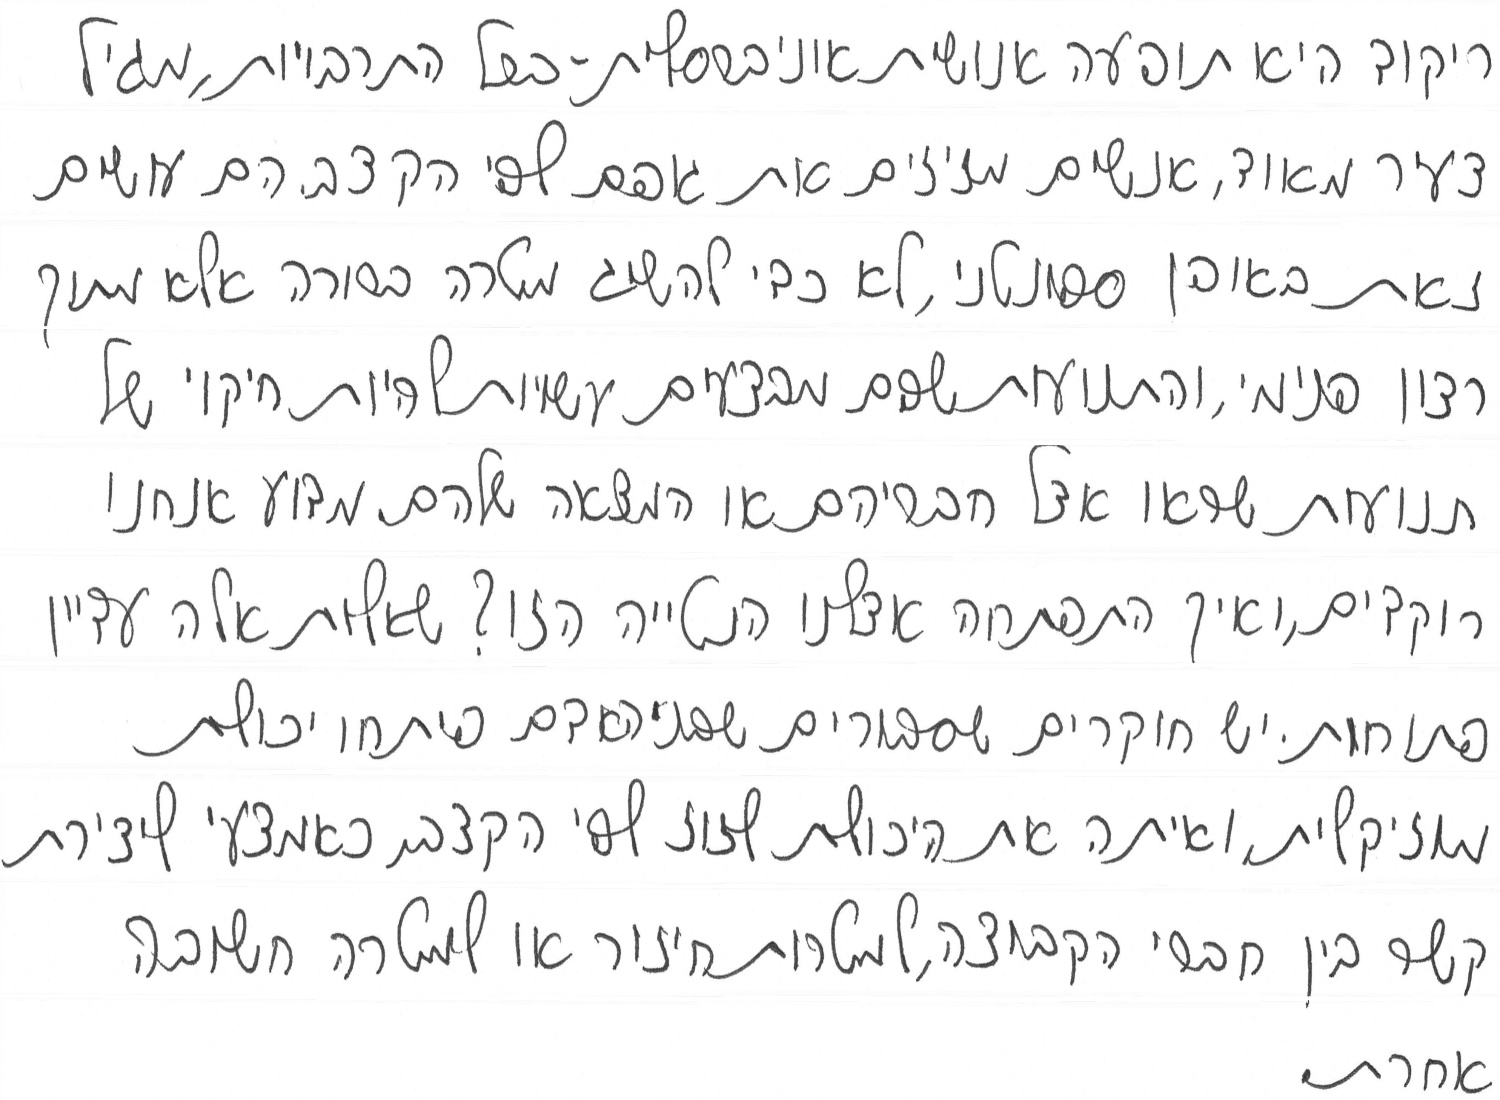 ריקוד היא תופעה אנושית אוניברסלית - בכל התרבויות, מגיל
צעיר מאוד, אנשים מזיזים את גופם לפי הקצב. הם עושים
זאת באופן ספונטני, לא כדי להשיג מטרה ברורה אלא מתוך
רצון פנימי, והתנועות שהם מבצעים עשויות להיות חיקוי של
תנועות שראו אצל חבריהם או המצאה שלהם. מדוע אנחנו
רוקדים, ואיך התפתחה אצלנו הנטייה הזו? שאלות אלה עדיין
פתוחות. יש חוקרים שסבורים שבני האדם פיתחו יכולת
מוזיקלית, ואיתה את היכולת לזוז לפי הקצב, כאמצעי ליצירת
קשר בין חברי הקבוצה, למטרות חיזור או למטרה חשובה
אחרת.